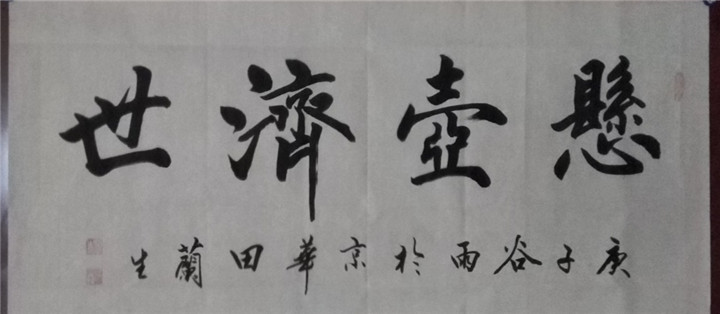 懸壺濟世
庚子谷雨於京華田蘭生